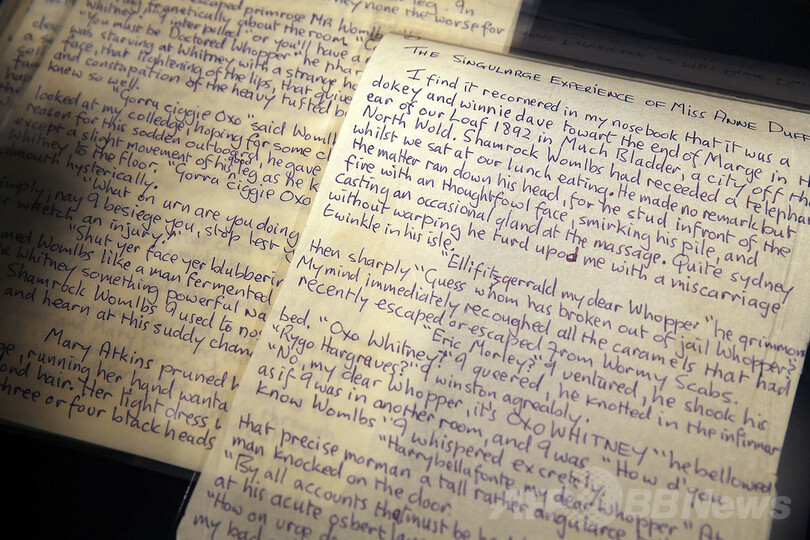 escaped primrose MR Womlb
they none the worse for
whitney, its generically about the room. "
"You must be "inter polled" or you'll have a
Doctored Whopper" he
was starving at Whitney with a strange
face, that tightening of the lips, that
and constapation of the heavy tufted
knew so well.
"Gorra ciggie Oxo" said Womlb
looked at my colledge, hoping for some
reason for this sodden outboard, he gave
except a slight movement of his leg as he
Whitney to the floor. "Gorra ciggie Oxo
almouth hysterically.
"What on urn are you doing
imply, nay I besiege you, stop lest
wretch, an injury!"
"Shut yer face yer blubberin
med Womlbs like a man fermented
Whitney something powerful
Shamrock Womlbs I used to
and hearn at this suddy chan
Mary Atkins pruned
ge, running her hand wanta
ond hair. Her tight dress,
three or four black heads
THE SINGULARGE EXPERIENCE OF MISS ANNE DUFF
I find it recornered in my nosebook that it was a
dokey and winnie dave towart the end of Marge in
ear of our Loaf 1892 in Much Bladder, a city off the
North Wold. Shamrock Womlbs had receeded a telephan
whilst we sat at our lunch eating. He made no remark but
the matter ran down his head, for he stud infront of the
fire with an thoughtfowl face, smirking his pile, and
casting an occasional gland at the massage. Quite sydney
without warping he turd upod me with a miscarriage
twinkle in his isle.
"Ellifitzgerrald my dear Whopper" he grimmon
then sharply "Guess whom has broken out of jail Whopper?"
My mind immediately recoughed all the caramels that had
recently escaped or escaped from Wormy Scabs.
"Eric Morley?" I ventured, he shook his
bed. "Oxo Whitney?" I queered, he knotted in the infirmar
"Rygo Hargraves?" I winston agreably.
"No, my dear Whopper, it's OXO WHITNEY" he bellowed
as if I was in another room, and I was. "How d'you
know Womlbs" I whispered excretely.
"Harrybellafonte, my dear Whopper" At
that precise morman a tall rather angularce
man knocked on the door.
"By all accounts that must be
at his acute osbert
"How on urge
my bad
AFPBBNews